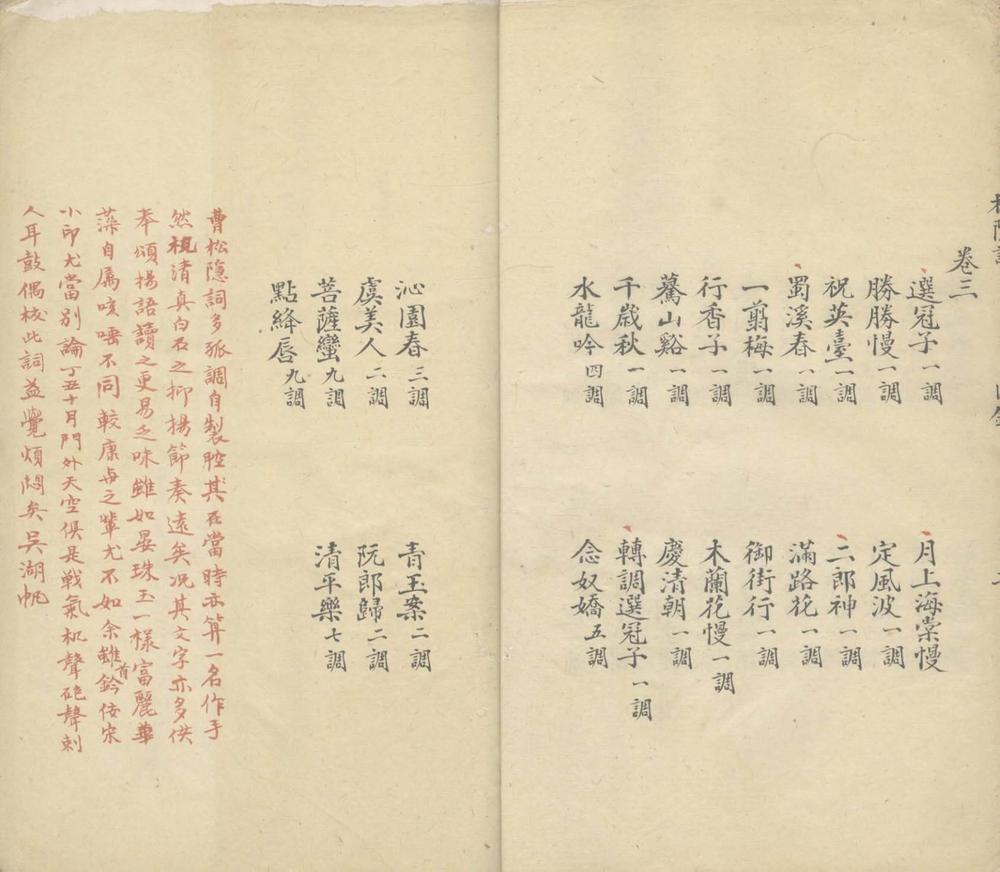 卷三
選冠子一調
月上海棠慢
勝勝慢一調
定風波一調
祝英臺一調
二郎神一調
蜀溪春一調
滿路花一調
一翦梅一調
御街行一調
行香子一調
木蘭花慢一調
驀山谿一調
慶清朝一調
千歲秋一調
轉調選冠子一調
水龍吟四調
念奴嬌五調
沁園春三調
青玉案二調
虞美人二調
阮郎歸二調
菩薩蠻九調
清平樂七調
點絳唇九調
曹松隱詞多孤調自製腔其在當時亦算一名作手
然視清真白石之抑揚節奏遠矣况其文字亦多供
奉頌揚語讀之更易乏味雖如晏珠玉一樣富麗華
藻自屬咳唾不同較康与之輩尤不如余雖首鈐佞宋
小印尤當別論丁丑十月門外天空俱是戰氣机聲砲聲刺
人耳鼓偶校此詞益覺煩悶矣吳湖帆